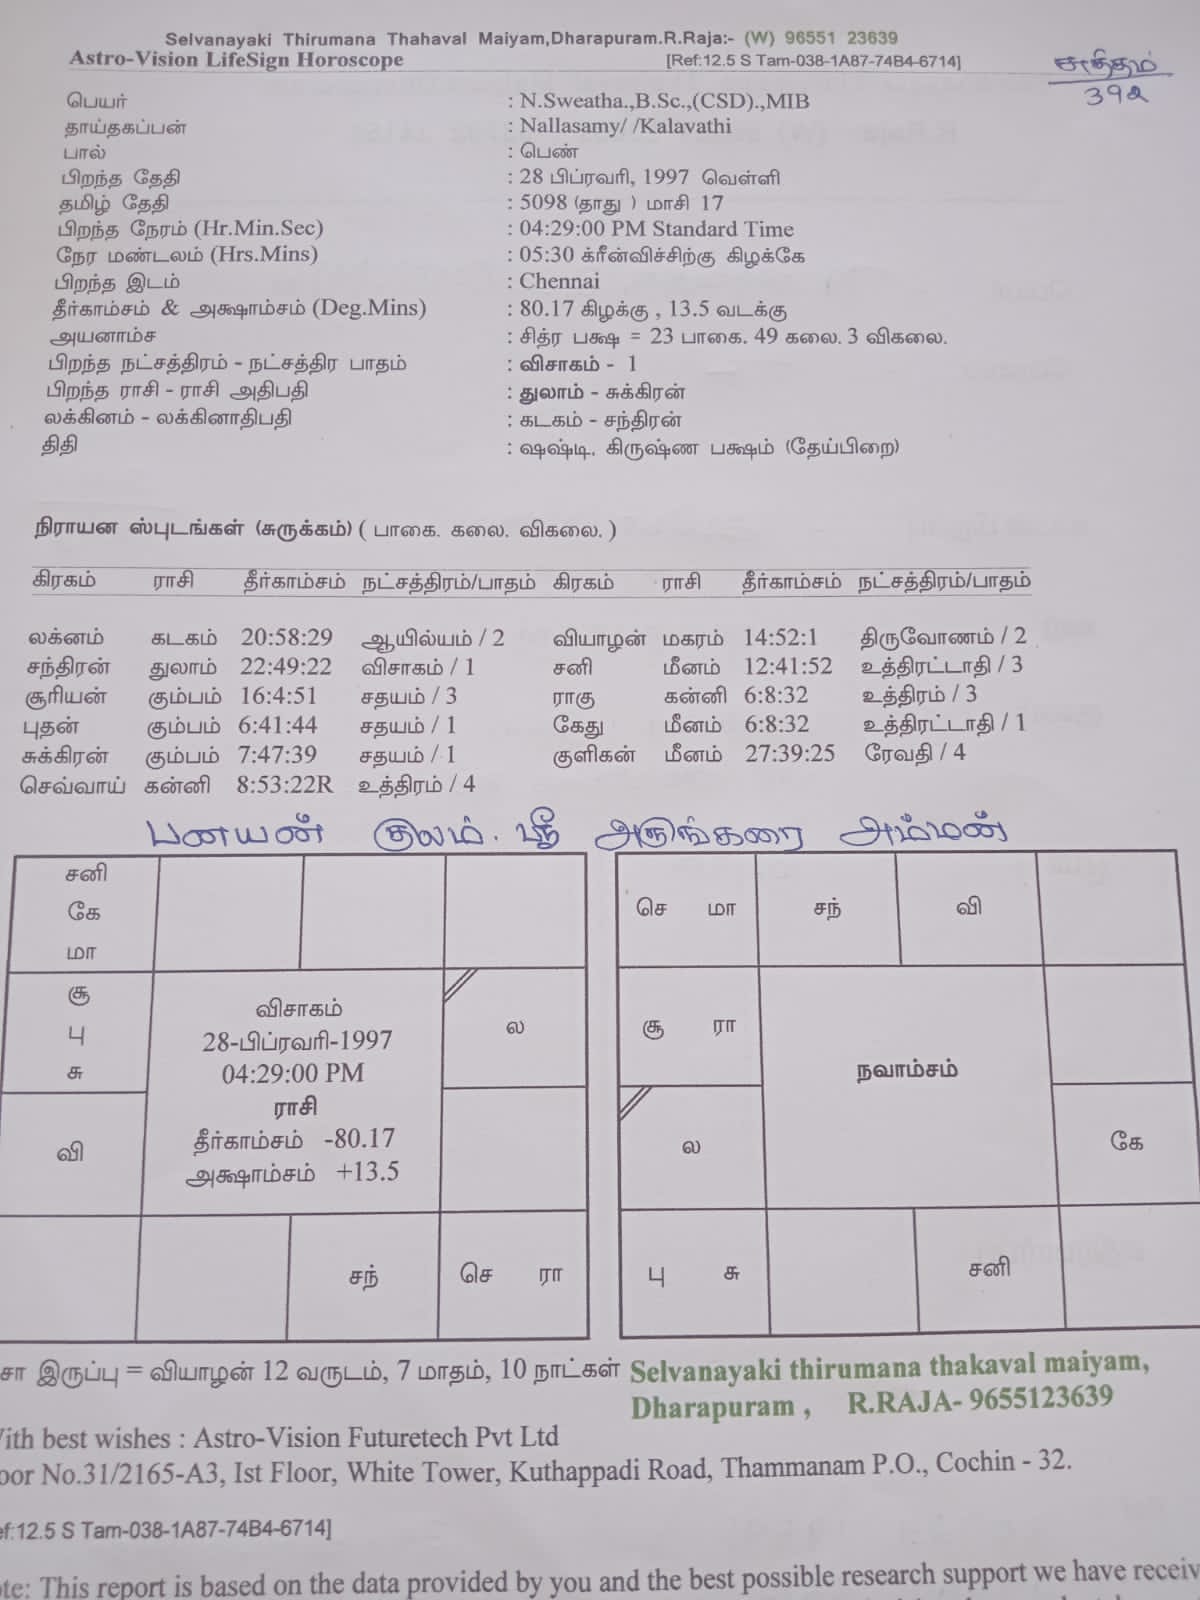 Selvanayaki Thirumana Thahaval Maiyam,Dharapuram.R.Raja:- (W) 96551 23639
Astro-Vision LifeSign Horoscope [Ref:12.5 S Tam-038-1A87-74B4-6714]
சுத்தம்
392
பெயர் : N.Sweatha.,B.Sc.,(CSD).,MIB
தாய்தகப்பன் : Nallasamy/ /Kalavathi
பால் : பெண்
பிறந்த தேதி : 28 பிப்ரவரி, 1997 வெள்ளி
தமிழ் தேதி : 5098 (தாது ) மாசி 17
பிறந்த நேரம் (Hr.Min.Sec) : 04:29:00 PM Standard Time
நேர மண்டலம் (Hrs.Mins) : 05:30 க்ரீன்விச்சிற்கு கிழக்கே
பிறந்த இடம் : Chennai
தீர்காம்சம் & அக்ஷாம்சம் (Deg.Mins) : 80.17 கிழக்கு , 13.5 வடக்கு
அயனாம்ச : சித்ர பக்ஷ = 23 பாகை. 49 கலை. 3 விகலை.
பிறந்த நட்சத்திரம் - நட்சத்திர பாதம் : விசாகம் - 1
பிறந்த ராசி - ராசி அதிபதி : துலாம் - சுக்கிரன்
லக்கினம் - லக்கினாதிபதி : கடகம் - சந்திரன்
திதி : ஷஷ்டி, கிருஷ்ண பக்ஷம் (தேய்பிறை)
நிராயன ஸ்புடங்கள் (சுருக்கம்) ( பாகை. கலை. விகலை. )
கிரகம் ராசி தீர்காம்சம் நட்சத்திரம்/பாதம் கிரகம் ராசி தீர்காம்சம் நட்சத்திரம்/பாதம்
லக்னம் கடகம் 20:58:29 ஆயில்யம் / 2 வியாழன் மகரம் 14:52:1 திருவோணம் / 2
சந்திரன் துலாம் 22:49:22 விசாகம் / 1 சனி மீனம் 12:41:52 உத்திரட்டாதி / 3
சூரியன் கும்பம் 16:4:51 சதயம் / 3 ராகு கன்னி 6:8:32 உத்திரம் / 3
புதன் கும்பம் 6:41:44 சதயம் / 1 கேது மீனம் 6:8:32 உத்திரட்டாதி / 1
சுக்கிரன் கும்பம் 7:47:39 சதயம் / 1 குளிகன் மீனம் 27:39:25 ரேவதி / 4
செவ்வாய் கன்னி 8:53:22R உத்திரம் / 4
பனயன் குலம். ஸ்ரீ அருங்கரை அம்மன்
சனி
கே
மா
சூ
பு
சு
ல
வி
சந்
செ ரா
விசாகம்
28-பிப்ரவரி-1997
04:29:00 PM
ராசி
தீர்காம்சம் -80.17
அக்ஷாம்சம் +13.5
செ மா
சந்
வி
சூ ரா
நவாம்சம்
ல
கே
பு சு
சனி
சா இருப்பு = வியாழன் 12 வருடம், 7 மாதம், 10 நாட்கள்
Selvanayaki thirumana thakaval maiyam,
Dharapuram , R.RAJA- 9655123639
ith best wishes : Astro-Vision Futuretech Pvt Ltd
oor No.31/2165-A3, Ist Floor, White Tower, Kuthappadi Road, Thammanam P.O., Cochin - 32.
ef:12.5 S Tam-038-1A87-74B4-6714]
ote: This report is based on the data provided by you and the best possible research support we have receiv